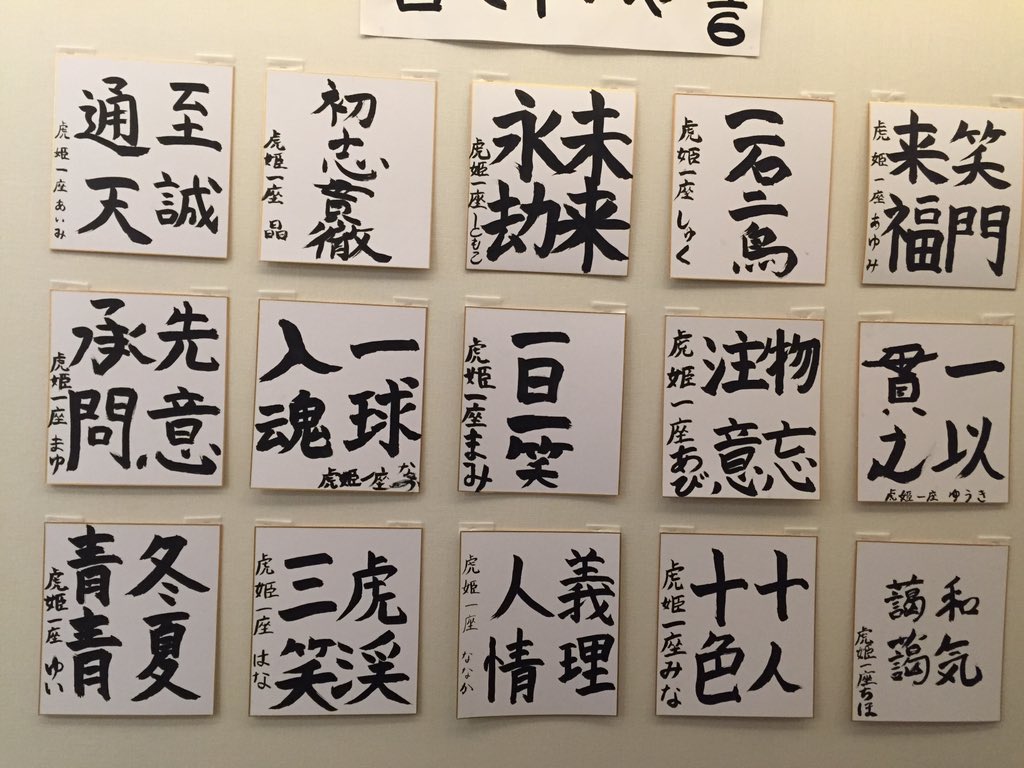 至誠
通天
虎姫一座 あいみ
初志貫徹
虎姫一座 晶
未来
永劫
虎姫一座 ともこ
一石二鳥
虎姫一座 しゅく
笑門
来福
虎姫一座 あゆみ
先意
承問
虎姫一座 まゆ
一球
入魂
虎姫一座
一日一笑
虎姫一座まみ
物忘
注意
虎姫一座あび
一以
貫之
虎姫一座 ゆうき
冬夏
青青
虎姫一座 ゆい
虎渓
三笑
虎姫一座 はな
義理
人情
虎姫一座 ななか
十人
十色
虎姫一座みな
和気
藹藹
虎姫一座ちほ